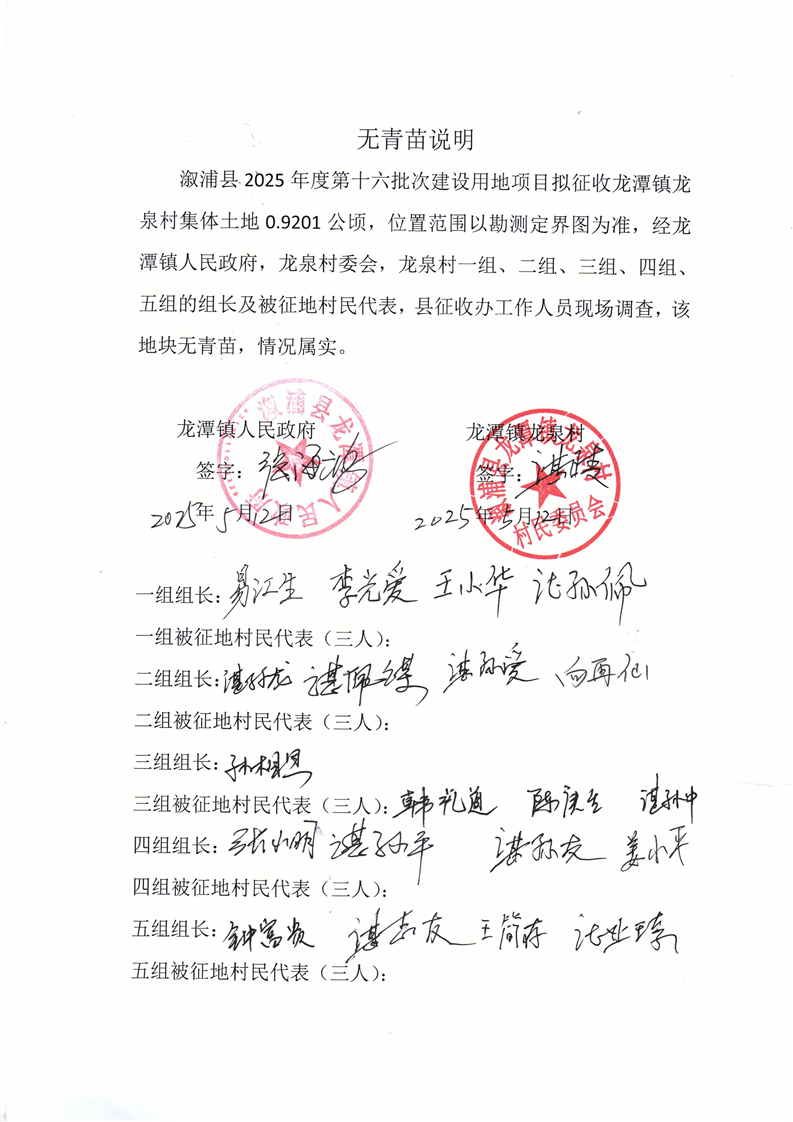 无青苗说明
溆浦县 2025 年度第十六批次建设用地项目拟征收龙潭镇龙
泉村集体土地 0.9201 公顷，位置范围以勘测定界图为准，经龙
潭镇人民政府，龙泉村委会，龙泉村一组、二组、三组、四组、
五组的组长及被征地村民代表，县征收办工作人员现场调查，该
地块无青苗，情况属实。
溆浦县龙潭镇人民政府
溆浦县龙潭镇龙泉村
村民委员会
龙潭镇人民政府 龙潭镇龙泉村
签字： 签字：
2025年5月12日 2025年5月12日
一组组长：易江生 李光爱 王小华
一组被征地村民代表（三人）：
二组组长：谌孙龙 向再仙
二组被征地村民代表（三人）：
三组组长：孙相恩
三组被征地村民代表（三人）：韩礼道 谌孙中
四组组长：张小明 谌孙平 谌孙友 姜小平
四组被征地村民代表（三人）：
五组组长：钟富贵
五组被征地村民代表（三人）：